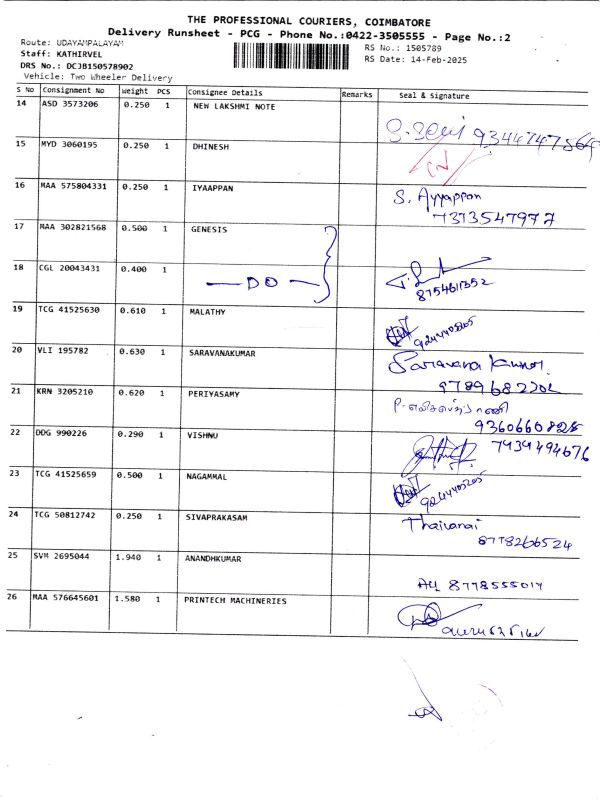 THE PROFESSIONAL COURIERS, COIMBATORE
Delivery Runsheet - PCG - Phone No.:0422-3505555 - Page No.:2
Route: UDAYAMPALAYAM
RS No.: 1505789
Staff: KATHIRVEL
RS Date: 14-Feb-2025
DRS No.: DCJB150578902
Vehicle: Two Wheeler Delivery
S No Consignment No Weight PCS Consignee Details Remarks Seal & Signature
14 ASD 3573206 0.250 1 NEW LAKSHMI NOTE
9344747564
15 MYD 3060195 0.250 1 DHINESH
16 MAA 575804331 0.250 1 IYAAPPAN S. Ayyappan
7373547977
17 MAA 302821568 0.500 1 GENESIS
18 CGL 20043431 0.400 1 DO
8754611352
19 TCG 41525630 0.610 1 MALATHY
9244405205
20 VLI 195782 0.630 1 SARAVANAKUMAR Saravana Kumar
21 KRN 3205210 0.620 1 PERIYASAMY
22 DDG 990226 0.290 1 VISHNU 7939494676
23 TCG 41525659 0.500 1 NAGAMMAL
9244405205
24 TCG 50812742 0.250 1 SIVAPRAKASAM
8778266524
25 SVM 2695044 1.940 1 ANANDHKUMAR
8778555017
26 MAA 576645601 1.580 1 PRINTECH MACHINERIES